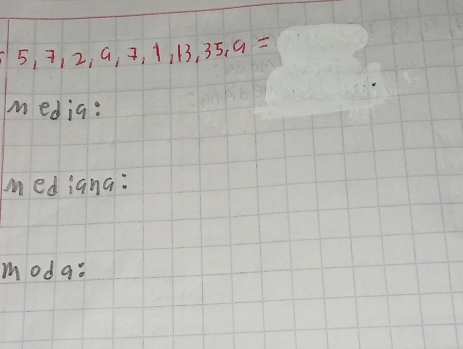 5, 7, 2, 9, 7, 1, 13, 35, 9 =
Media:
Mediana:
Moda: